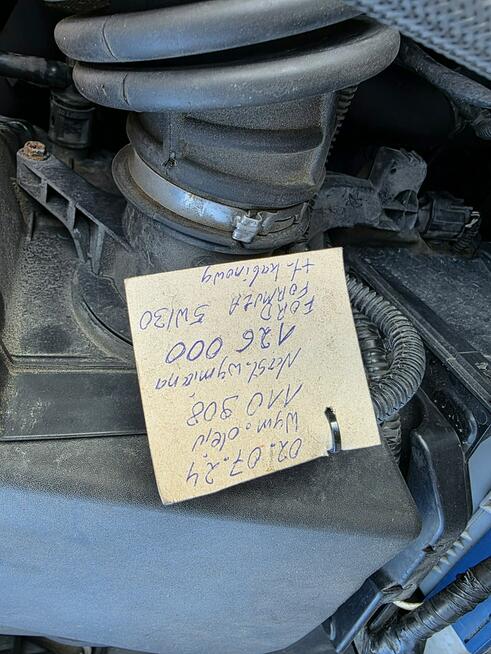 02.07.24
Wym. oleju
110 908
Nast. wymiana
126 000
FORD
FORMUŁA 5W130
+f. kabinowy